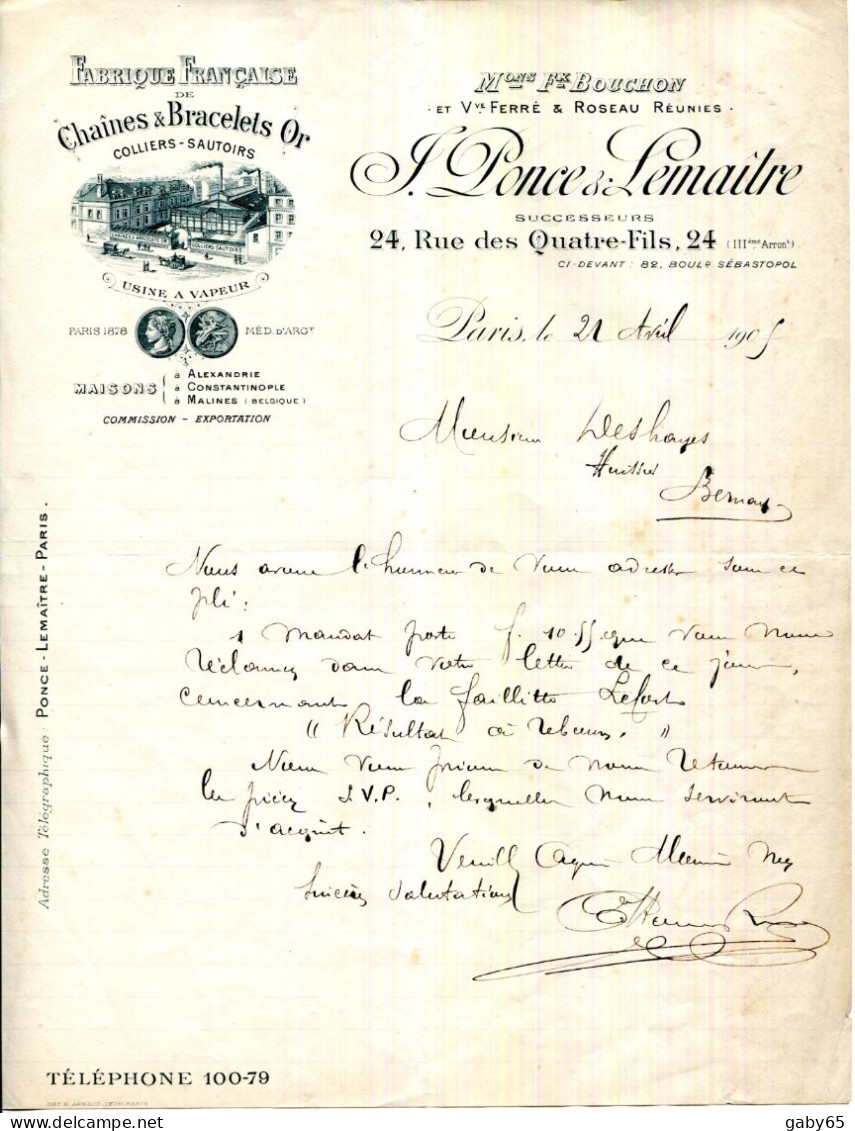 FABRIQUE FRANÇAISE
DE
Chaînes & Bracelets Or
COLLIERS-SAUTOIRS
CHAINES & BRACELETS OR
COLLIERS SAUTOIRS
USINE A VAPEUR
PARIS 1878 MÉD. D'ARGT
MAISONS
à ALEXANDRIE
à CONSTANTINOPLE
à MALINES (BELGIQUE)
COMMISSION - EXPORTATION
MONS FX BOUCHON
· ET VVE FERRÉ & ROSEAU RÉUNIES ·
J. Ponce & Lemaître
SUCCESSEURS
24, Rue des Quatre-Fils, 24 (IIIème Arront).
CI-DEVANT: 82, BOULD SÉBASTOPOL
Paris, le 21 Avril 1905
Monsieur Deshayes
Huissier
Bernay
Nous avons l'honneur de vous adresser sous ce
pli:
1 Mandat poste f. 10.55 que vous nous
réclamez dans votre lettre de ce jour,
concernant la faillitte Lefort
" Résultat à rebours, "
Nous vous prions de nous retourner
les pièces S.V.P., lesquelles nous serviront
d'acquit.
Veuillez Monsieur nos
Sincères Salutations
Adresse Télégraphique: PONCE-LEMAÎTRE-PARIS.
TÉLÉPHONE 100-79
gaby65